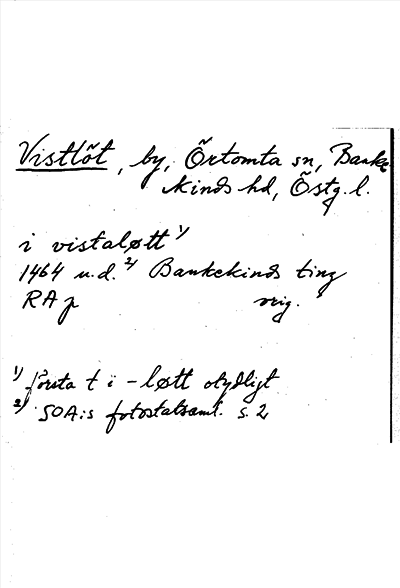 Vistlöt, by, Örtomta sn, Banke
kinds hd, Östg. l.
i vistaløtt 1)
1464 u.d. 2) Bankekinds ting
RA p orig.
1) första t i -løtt otydligt
2) SOA:s fotostatsaml. s. 2